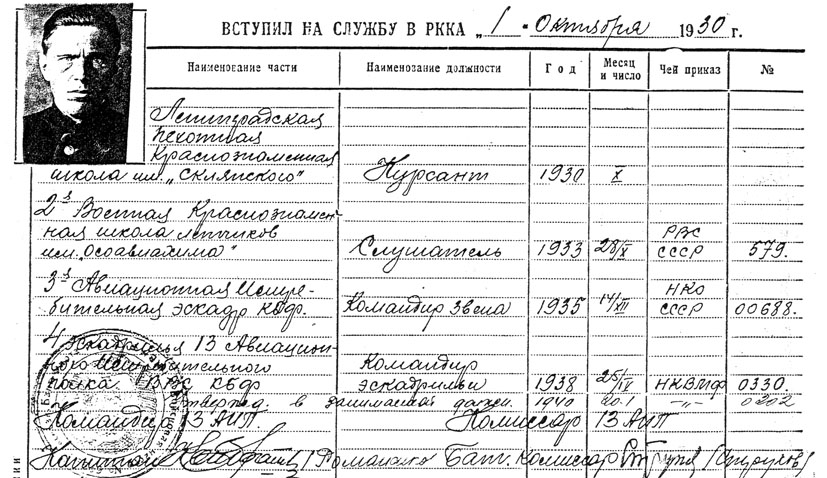 ВСТУПИЛ НА СЛУЖБУ В РККА „1" Октября 1930 г.
Наименование части Наименование должности Год Месяц и число Чей приказ №
Ленинградская
пехотная
Краснознаменная
школа им. „Склянского" Курсант 1930 X
2я Военная Краснознамен-
ная школа летчиков РВС
им. „Осоавиахима" Слушатель 1933 28/X СССР 579.
3я Авиационная Истре- НКО
бительная эскадр КБФ. Командир Звена 1935 14/XII СССР 00688.
4 эскадрилья 13 Авиацион-
ного Истребительного Командир
полка ВВС КБФ эскадрильи 1938 25/IV НКВМФ 0330.
Утвержд. в занимаемой должн. 1940 20.1 —„— 0202
Командир 13 АИП. Комиссар 13 АИП
Капитан /Романенко Бат. Комиссар